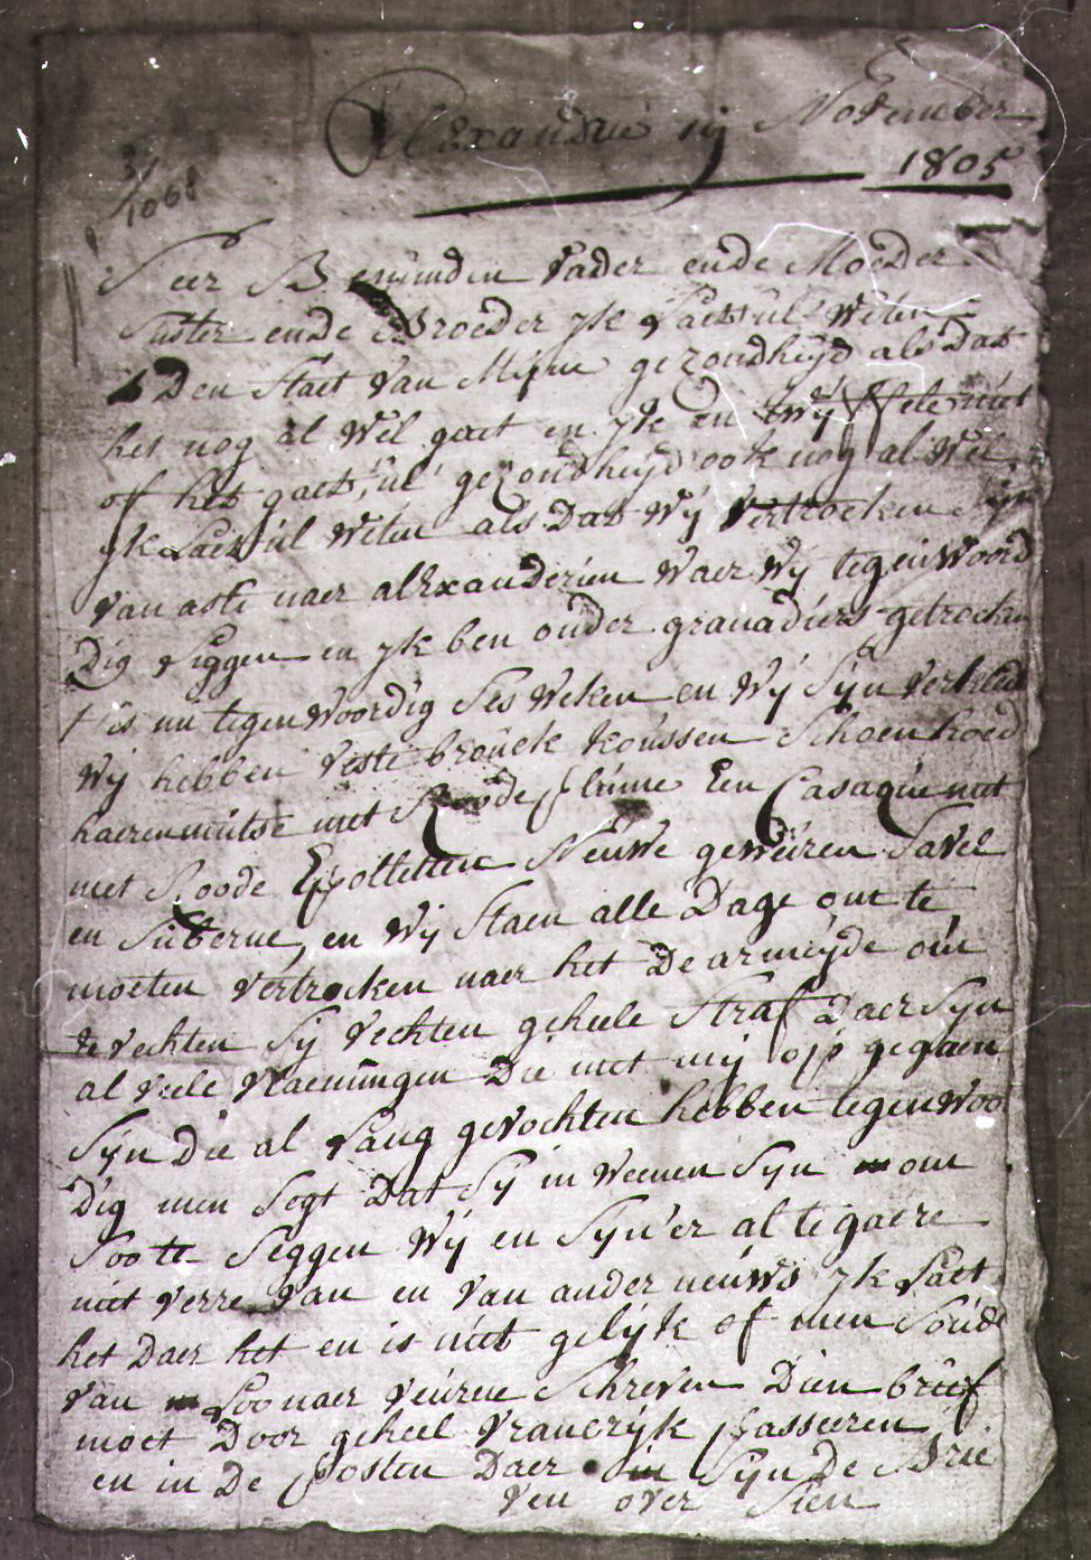 Alexandrie iij November
1805
31/1068
Seer Beminden Vader ende Moeder
Suster ende Broeder yk Laet ul' Weten
Den Staet Van Mijne gezondheyd als Dat
het nog al Wel gaet en yk en twijffele niet
of het gaet ul' gezondheyd ook nog al Wel
yk Laet ul Weten als Dat Wij Vertrocken Sijn
Van aste naer alExanderien Waer Wij tegenWoord
Dig Liggen en yk ben onder granadiers getrocken
t is nu tegenWoordig Ses Weken en Wij Sijn Verkleed
Wij hebben Veste brouck koussen Schoen hoed
haerenmutse met Roode plume Een Casaque met
met Roode Epolletten Neuwe geweiren Savel
en Siiberne, en Wij Staen alle Dage om te
moeten Vertrocken naer het De armeyde om
te Vechten Sij Vechten geheele Straf Daer Sijn
al Veele Vlaemingen Die met mij op gegaen
Sijn Die al Lang geVochten hebben tegenWoo
Dig men Segt Dat Sij in Weenen Sijn om
Soo te Seggen Wij en Sijn er al te gaere
niet Verre Van en Van ander neuws yk Laet
het Daer het en is niet gelyk of men Soude
Van Loo naer Veurne Schreven Dien brief
moet Door geheel Vrancryk passeeren
en in De posten Daer Sijn De Brie
ven over Sien